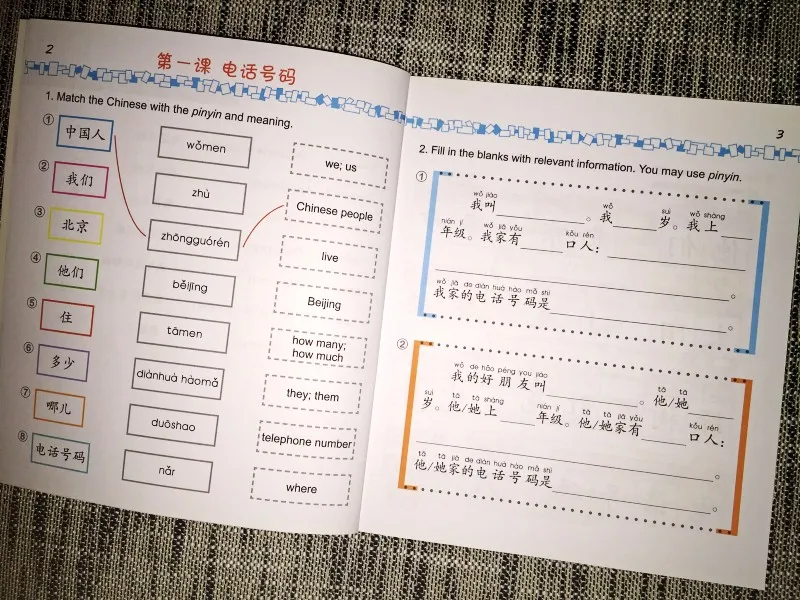 2
第一课 电话号码
1. Match the Chinese with the pinyin and meaning.
① 中国人
② 我们
③ 北京
④ 他们
⑤ 住
⑥ 多少
⑦ 哪儿
⑧ 电话号码
wǒmen
zhù
zhōngguórén
běijīng
tāmen
diànhuà hàomǎ
duōshao
nǎr
we; us
Chinese people
live
Beijing
how many;
how much
they; them
telephone number
where
3
2. Fill in the blanks with relevant information. You may use pinyin.
①
wǒ jiào wǒ suì wǒ shàng
我叫 。我 岁。我上
nián jí wǒ jiā yǒu kǒu rén
年级。我家有 口人：
。
wǒ jiā de diàn huà hào mǎ shì
我家的电话号码是
。
②
wǒ de hǎo péng you jiào tā tā
我的好朋友叫 。他/她
suì tā tā shàng nián jí tā tā jiā yǒu kǒu rén
岁。他/她上 年级。他/她家有 口人：
。
tā tā jiā de diàn huà hào mǎ shì
他/她家的电话号码是
。